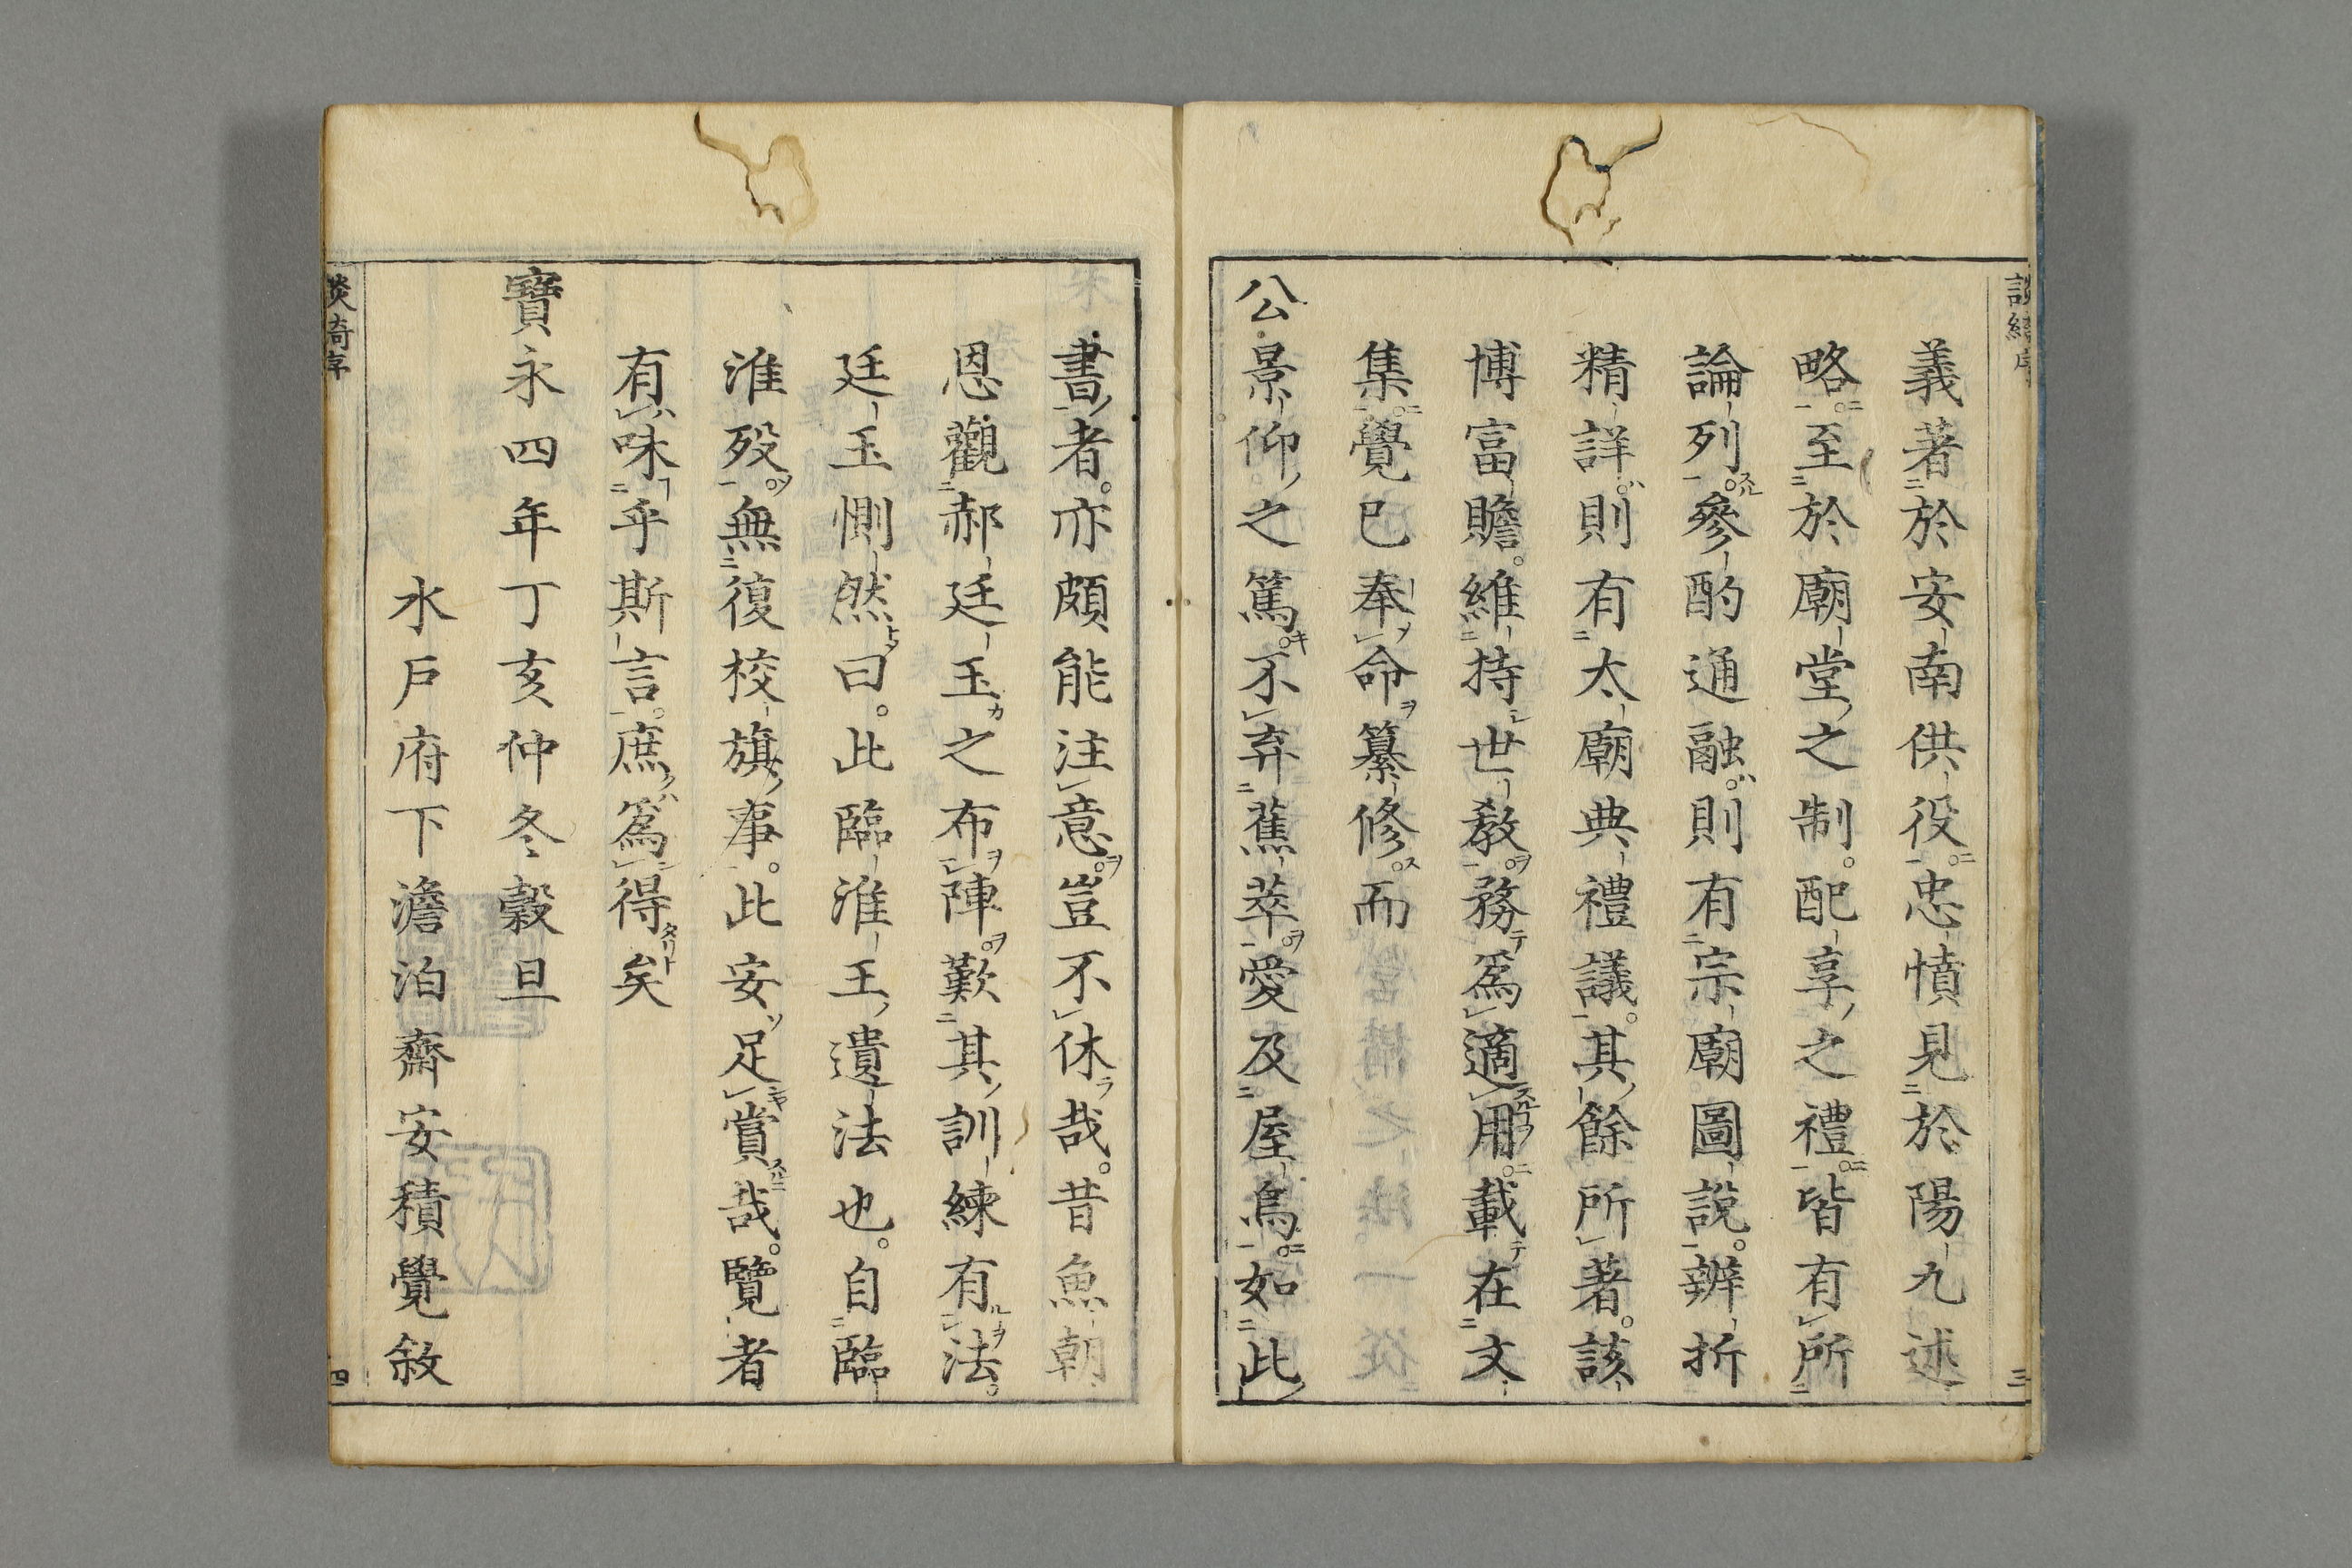 義著於安南供役忠憤見於陽九述
略至於廟堂之制配享之禮皆有所
論列參酌通融則有宗廟圖說辨折
精詳則有太廟典禮議其餘所著該
博富贍維持世教務爲適用載在文
集覺已奉命纂修而
公景仰之篤不弃蕉萃愛及屋烏如此
書者亦頗能注意豈不休哉昔魚朝
恩觀郝廷玉之布陣歎其訓練有法
廷玉惻然曰此臨淮王遺法也自臨
淮歿無復校旗事此安足賞哉覽者
有味乎斯言庶爲得矣
寶永四年丁亥仲冬穀旦
水戶府下澹泊齋安積覺敘
三
四